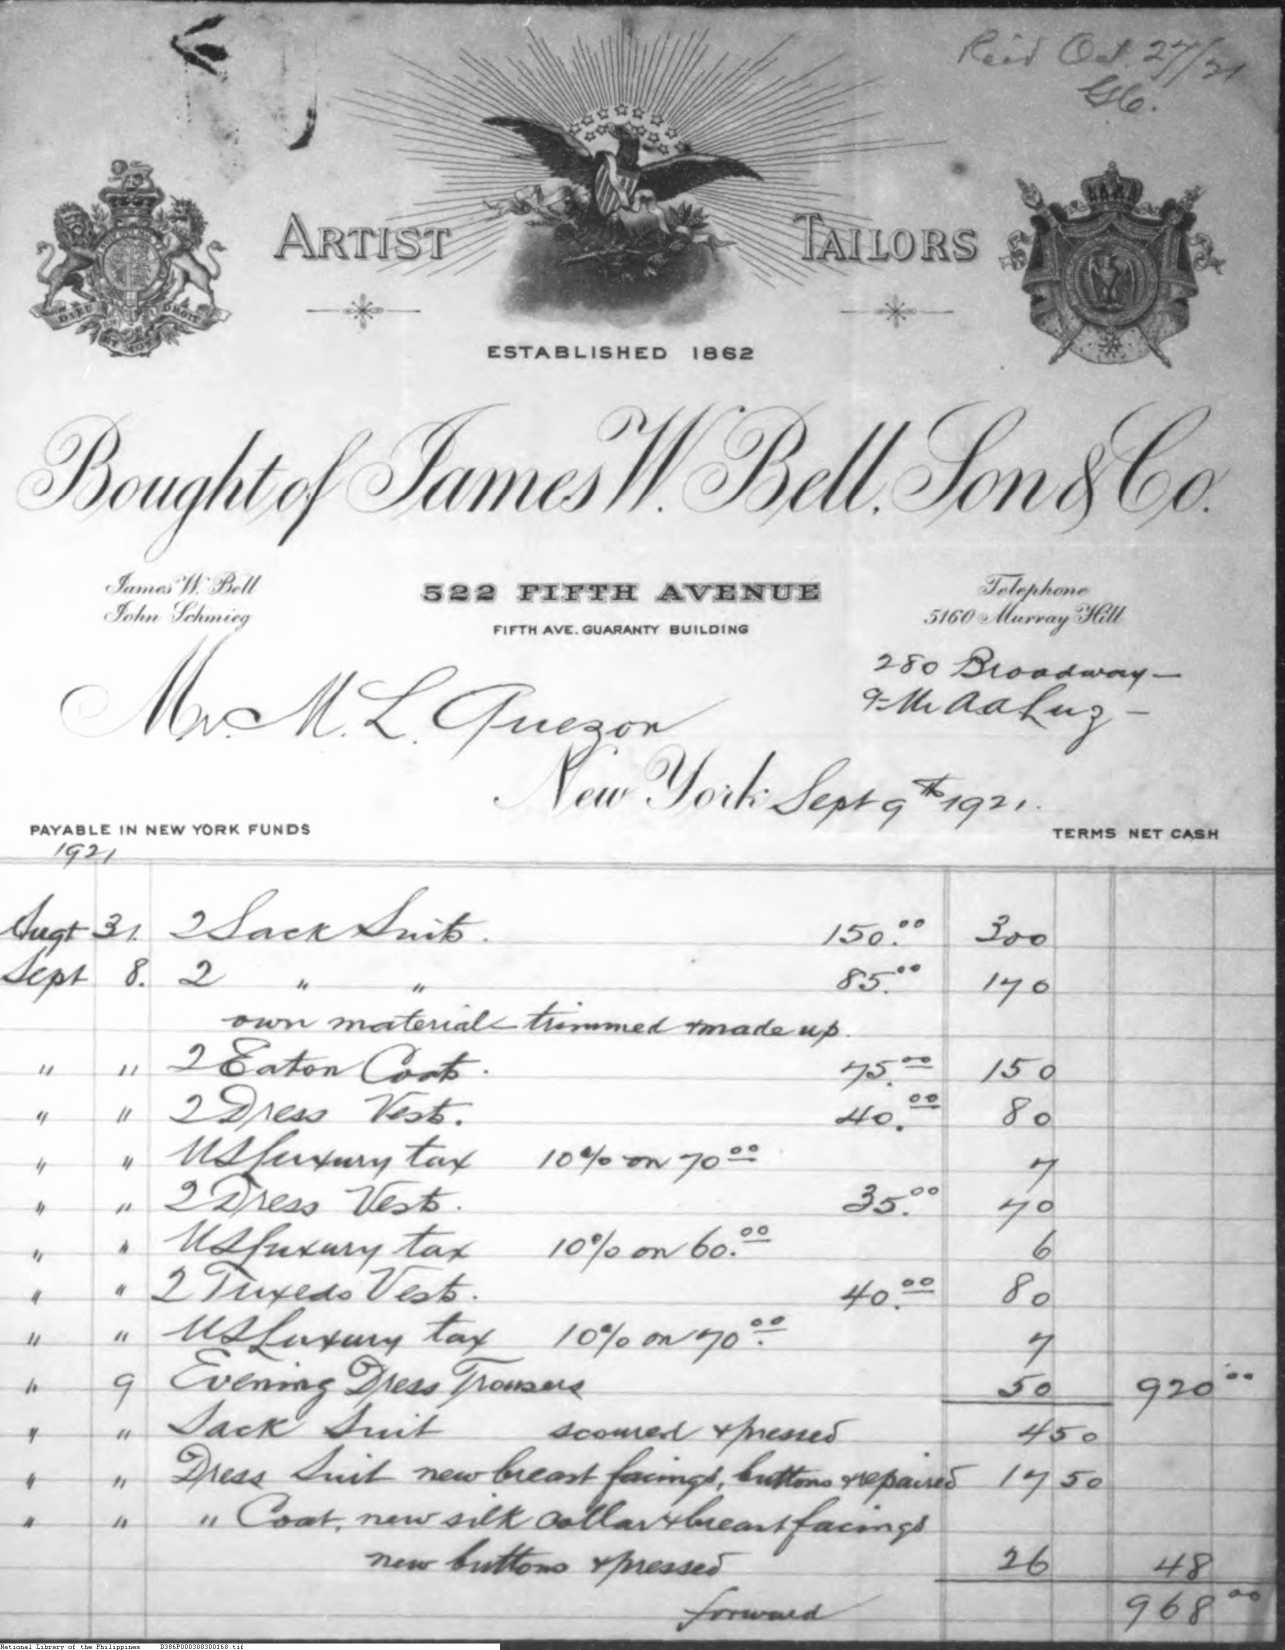 Rec'd Oct. 27/21
ARTIST TAILORS
DIEU ET MON DROIT
ESTABLISHED 1862
Bought of James W. Bell, Son & Co.
James W. Bell
John Schmieg
522 FIFTH AVENUE
FIFTH AVE. GUARANTY BUILDING
Telephone
5160 Murray Hill
280 Broadway —
Mr. M. L. Quezon
New York Sept 9th 1921.
PAYABLE IN NEW YORK FUNDS
TERMS NET CASH
1921
Augt 31. 2 Sack Suits. 150.00 300
Sept 8. 2 " " 85.00 170
own material trimmed & made up.
" " 2 Eaton Coats. 75.00 150
" " 2 Dress Vests. 40.00 80
" " US Luxury tax 10% on 70.00 7
" " 2 Dress Vests. 35.00 70
" " US Luxury tax 10% on 60.00 6
" " 2 Tuxedo Vests. 40.00 80
" " US Luxury tax 10% on 70.00 7
" 9 Evening Dress Trousers 50 920.00
" " Sack Suit scoured & pressed 4 50
" " Dress Suit new breast facings, buttons & repaired 17 50
" " " Coat, new silk collar & breast facings
new buttons & pressed 26 48
forward 968.00
National Library of the Philippines D386P000308300160.tif